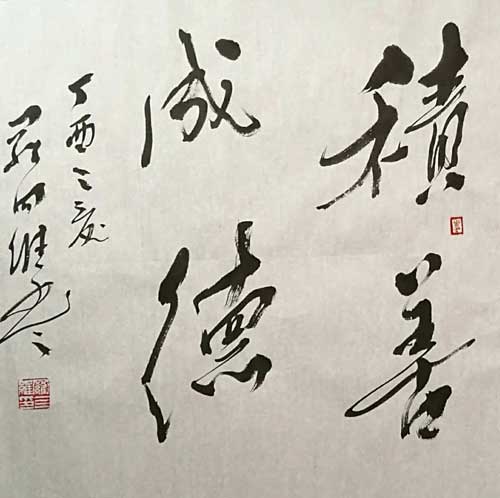 積善
成德
丁酉之夏